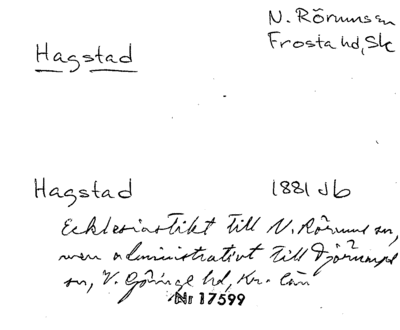 N. Rörums sn
Frosta hd, Sk
Hagstad
Hagstad 1881 Jb
Ecklesiastikt till N. Rörums sn,
men administrativt till
sn, V. Göinge hd, Kr. län
Nr 17599